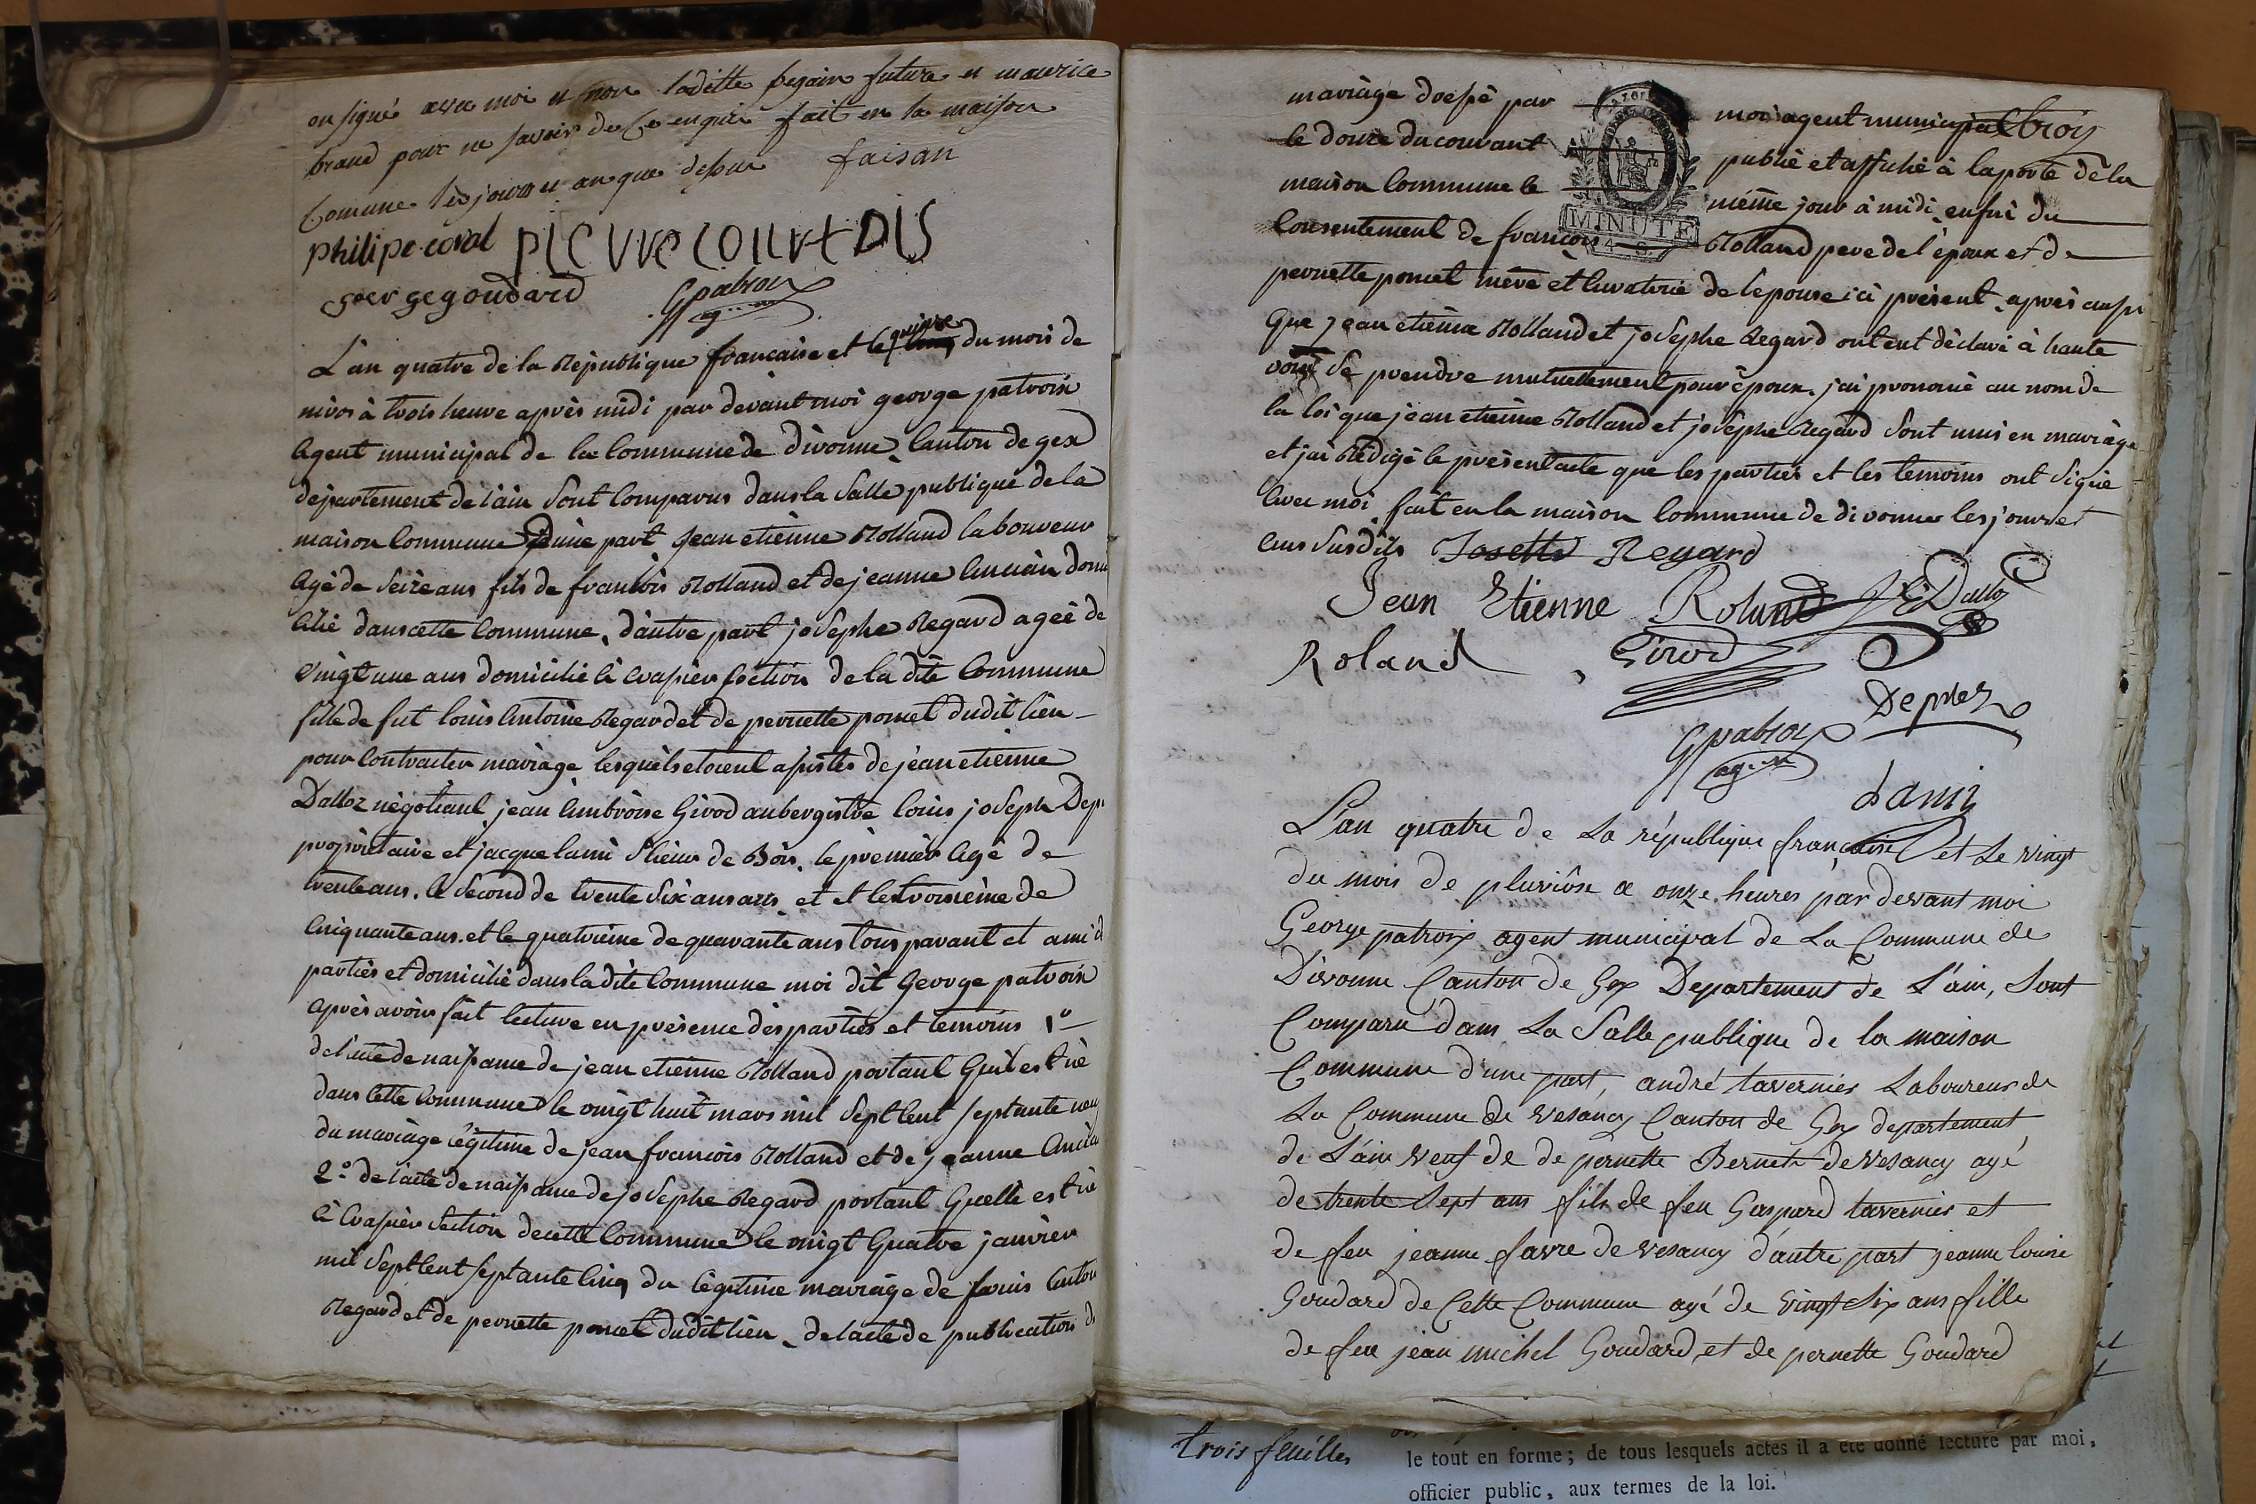 on signé avec moi et non laditte begain future et maurice
brand pour ne savoir de ce enquir fait en la maison
Comune lès jours et an que dessur faisan
philipe coral PIERRE COLLET DIS
george goudard Gpatroix
ag...
L'an quatre de la République francaise et le quinze du mois de
nivos à trois heure après midi par devant moi george patroix
Agent municipal de la Commune de divonne Canton de gex
département de l'ain Sont Comparus dans la Salle publique de la
maison Commune d'une part Jean etienne Rolland laboureur
Agé de Seize ans fils de francois Rolland et de jeanne Ancian domi
cilié dans cette Commune, d'autre part josephe Regard agée de
vingt une ans domicilié à Crassier section de la dite Commune
fille de fut louis Antoine Regard et de pernette poncet dudit lieu
pour Contracter mariage lesquels etoient assistés de jean etienne
Dalloz négotiant jean Ambroise Girod aubergiste louis joseph Dep
propriétaire et jacque lami Slieur de Bois, le premier Agé de
trente ans, le Second de trente Six ans et et le troisième de
Cinquante ans. et le quatrième de quarante ans tous parant et ami d
parties et domicilié dans la dite Commune moi dit George patroix
après avoir fait lecture en présence des parties et temoins 1º
de l'acte de naissance de jean etienne Rolland portant Quil est né
dans Cette Commune le vingt huit mars mil Sept Cent septante neuf
du mariage légitime de jean francois Rolland et de jeanne Ancian
2º de l'acte de naissance de josephe Regard portant Quelle est né
à Crassier Section de cette Commune le vingt Quatre janvier
mil Sept Cent septante Cinq du légitime mariage de louis Antoi
Regard et de pernette poncet dudit lieu, de l'acte de publication d
mariage dressé par moi agent municipal
le douze du courant publié et affiché à la porte de la
maison Commune le même jour à midi enfin du
MINUTE
Consentement de françois Rolland pere de l'époux et de
pernette poncet mère et Curatrice de lepouse ici présent, après aussi
que jean etienne Rolland et josephe Regard ont eut déclaré à haute
voix Se prendre mutuellement pour époux, j'ai prononcé au nom de
la loi que jean etienne Rolland et josephe Regard Sont unis en mariage
et j'ai Rédigé le présent acte que les parties et les temoins ont Signé
Avec moi fait en la maison Commune de divonne les jours et
ans susdits Josette Regard
Jean Etienne Roland J E Dalloz
Roland Girod
Deprez
Gpatroix
ag..
Lami
L'an quatre de La république française et Le vingt
du mois de pluviôse a onze heures par devant moi
George patroix agent municipal de La Commune de
Divonne Canton de Gex Departement de L'ain, Sont
Comparu dans La Salle publique de la maison
Commune d'une part, andré tavernier Laboureur de
La Commune de vesancy Canton de Gex departement
de L'ain veuf de de pernette Bernet de vesancy agé
de trente Sept ans fils de feu Gaspard tavernier et
de feu jeanne favre de vesancy d'autre part jeanne louise
Goudard de Cette Commune agé de vingt Six ans fille
de feu jean michel Goudard et de pernette Goudard
trois feuilles
le tout en forme ; de tous lesquels actes il a été donné lecture par moi,
officier public, aux termes de la loi.